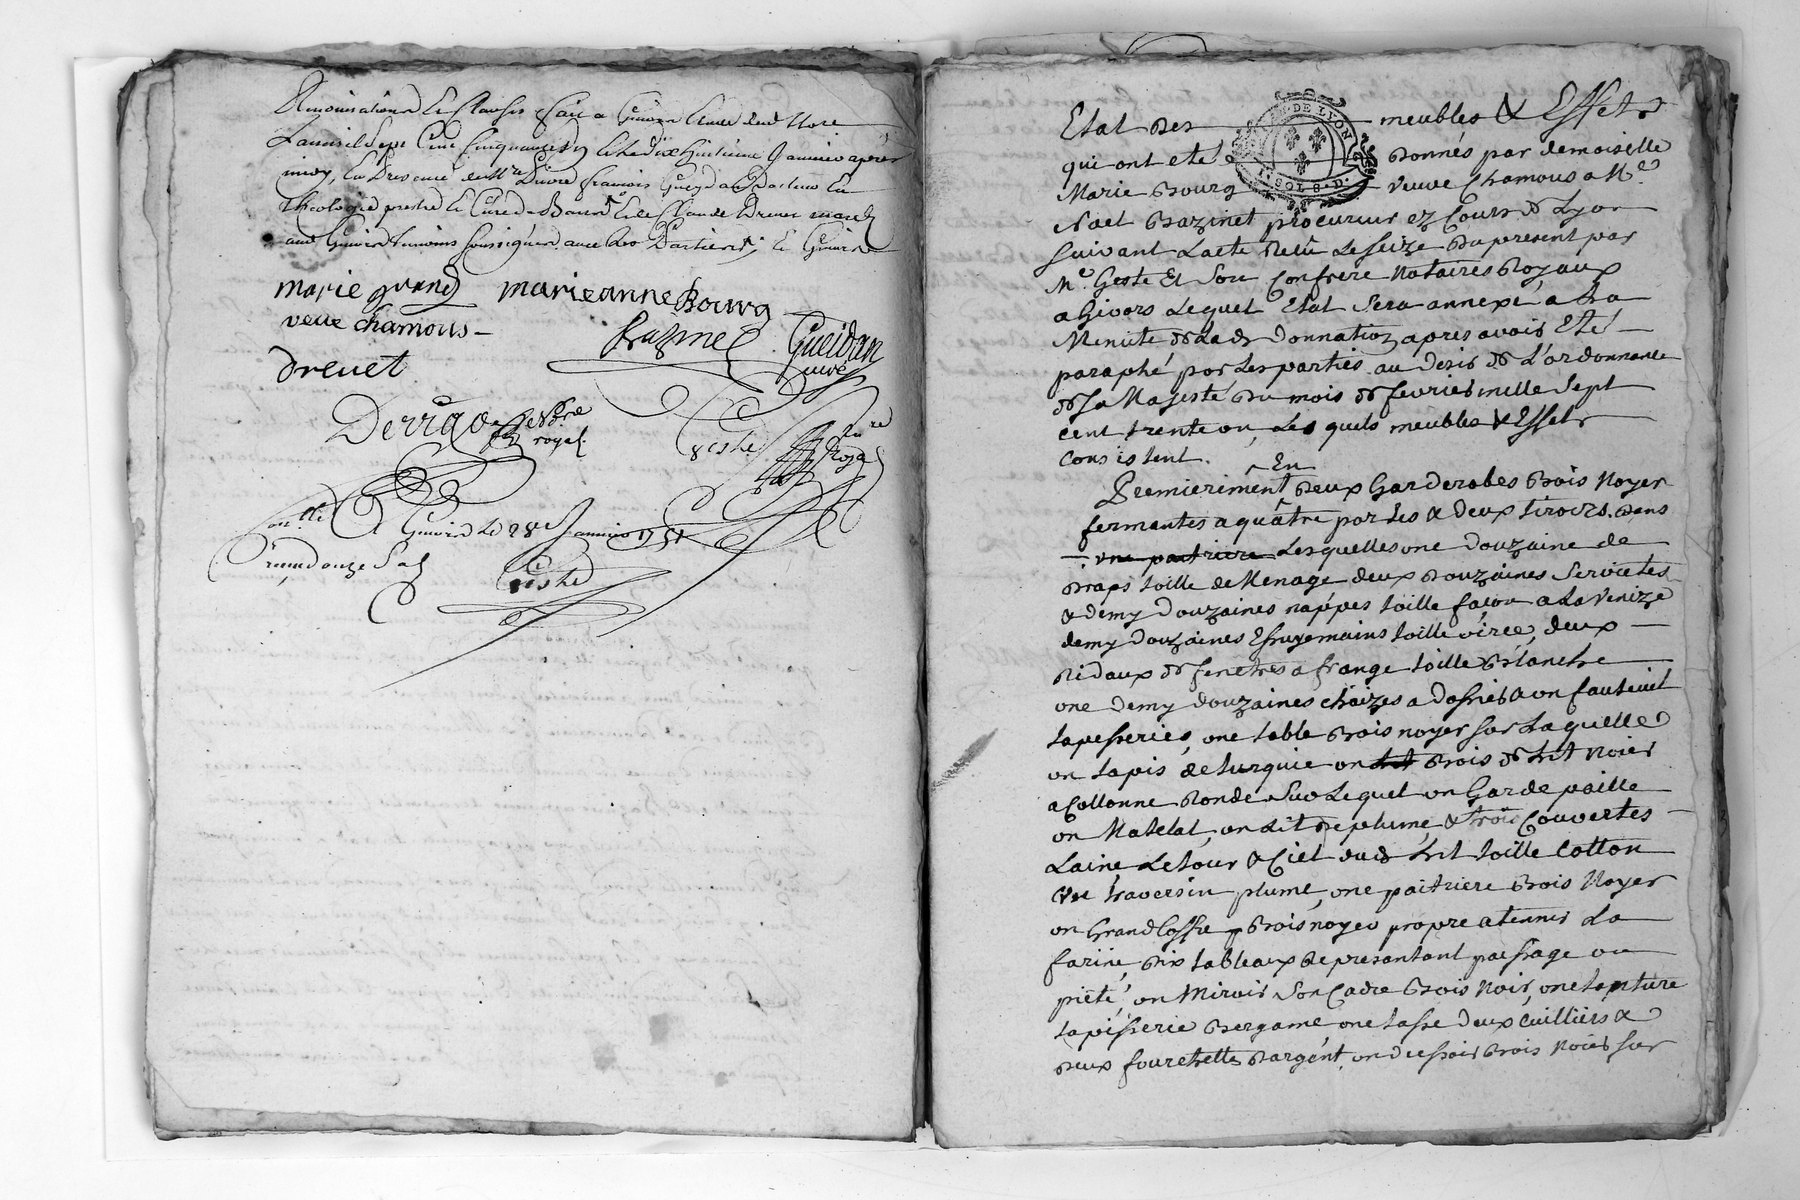 Renonciations & Clauses fait a Givors Etude dud Nore
L'an mil Sept Cent Cinquante un & Le dix huitieme Janvier apres
midy, En Presence de Mre françois Gueydan Docteur En
Theologie prestre & Curé de & de Claude Drevet march
aud Givors temoins soussignés avec les Parties
marie grand marieanne Bourg
veuve chamous
Bazinet Gueidan
curé
Drevet
Derrigo
royal
Geste nre
Royal
Conllé A Givors Le 28e Janvier 1751
Reçu douze Sols
Geste
Etat Des meubles & Effets
DE LYON
1. SOL 8. D.
qui ont eté donnés par demoiselle
Marie Bourg veuve Chamous a Me
Noel Bazinet procureur ez Cours de Lyon
suivant L'acte Reçu Le seize du present par
Me Geste Et son Confrere Notaires Royaux
a Givors Lequel Etat sera annexé a La
Minute de Lade donnation apres avoir Eté
paraphé par Les parties au desir de L'ordonnance
de sa Majesté du mois de fevrier mille sept
cent trente un, Les quels meubles & Effets
Consistent.
En
Premierement deux Garderobes Bois Noyer
fermantes a quatre portes & deux tiroirs. Dans
une paitriere Lesquelles une Douzaine de
Draps toille de Menage deux Douzaines Serviettes
& demy Douzaines nappes toille façon a La Venize
demy Douzaines Essuyemains toille virée, deux
Ridaux de fenetres a frange toille Blanche
une demy douzaines chaizes a dossier & un fauteuil
tapisseries, une table Bois noyer sur Laquelle
un tapis de turquie un lit Bois de Lit Noier
a Collonne Ronde Sur Lequel un Garde paille
un Matelat, un Lit de plume, & trois Couvertes
Laine Le tour & Ciel dud Lit toille Cotton
Un traversin plume, une paitriere Bois Noyer
un Grand Coffre Bois noyer propre a tenir La
farine, dix tableaux Representant paissage ou
pieté, un Miroir Son Cadre Bois Noir, une tapture
tapisserie Bergame une tasse Deux Cuilliers &
Deux fourchettes D'argent, un dressoir Bois Noier sur